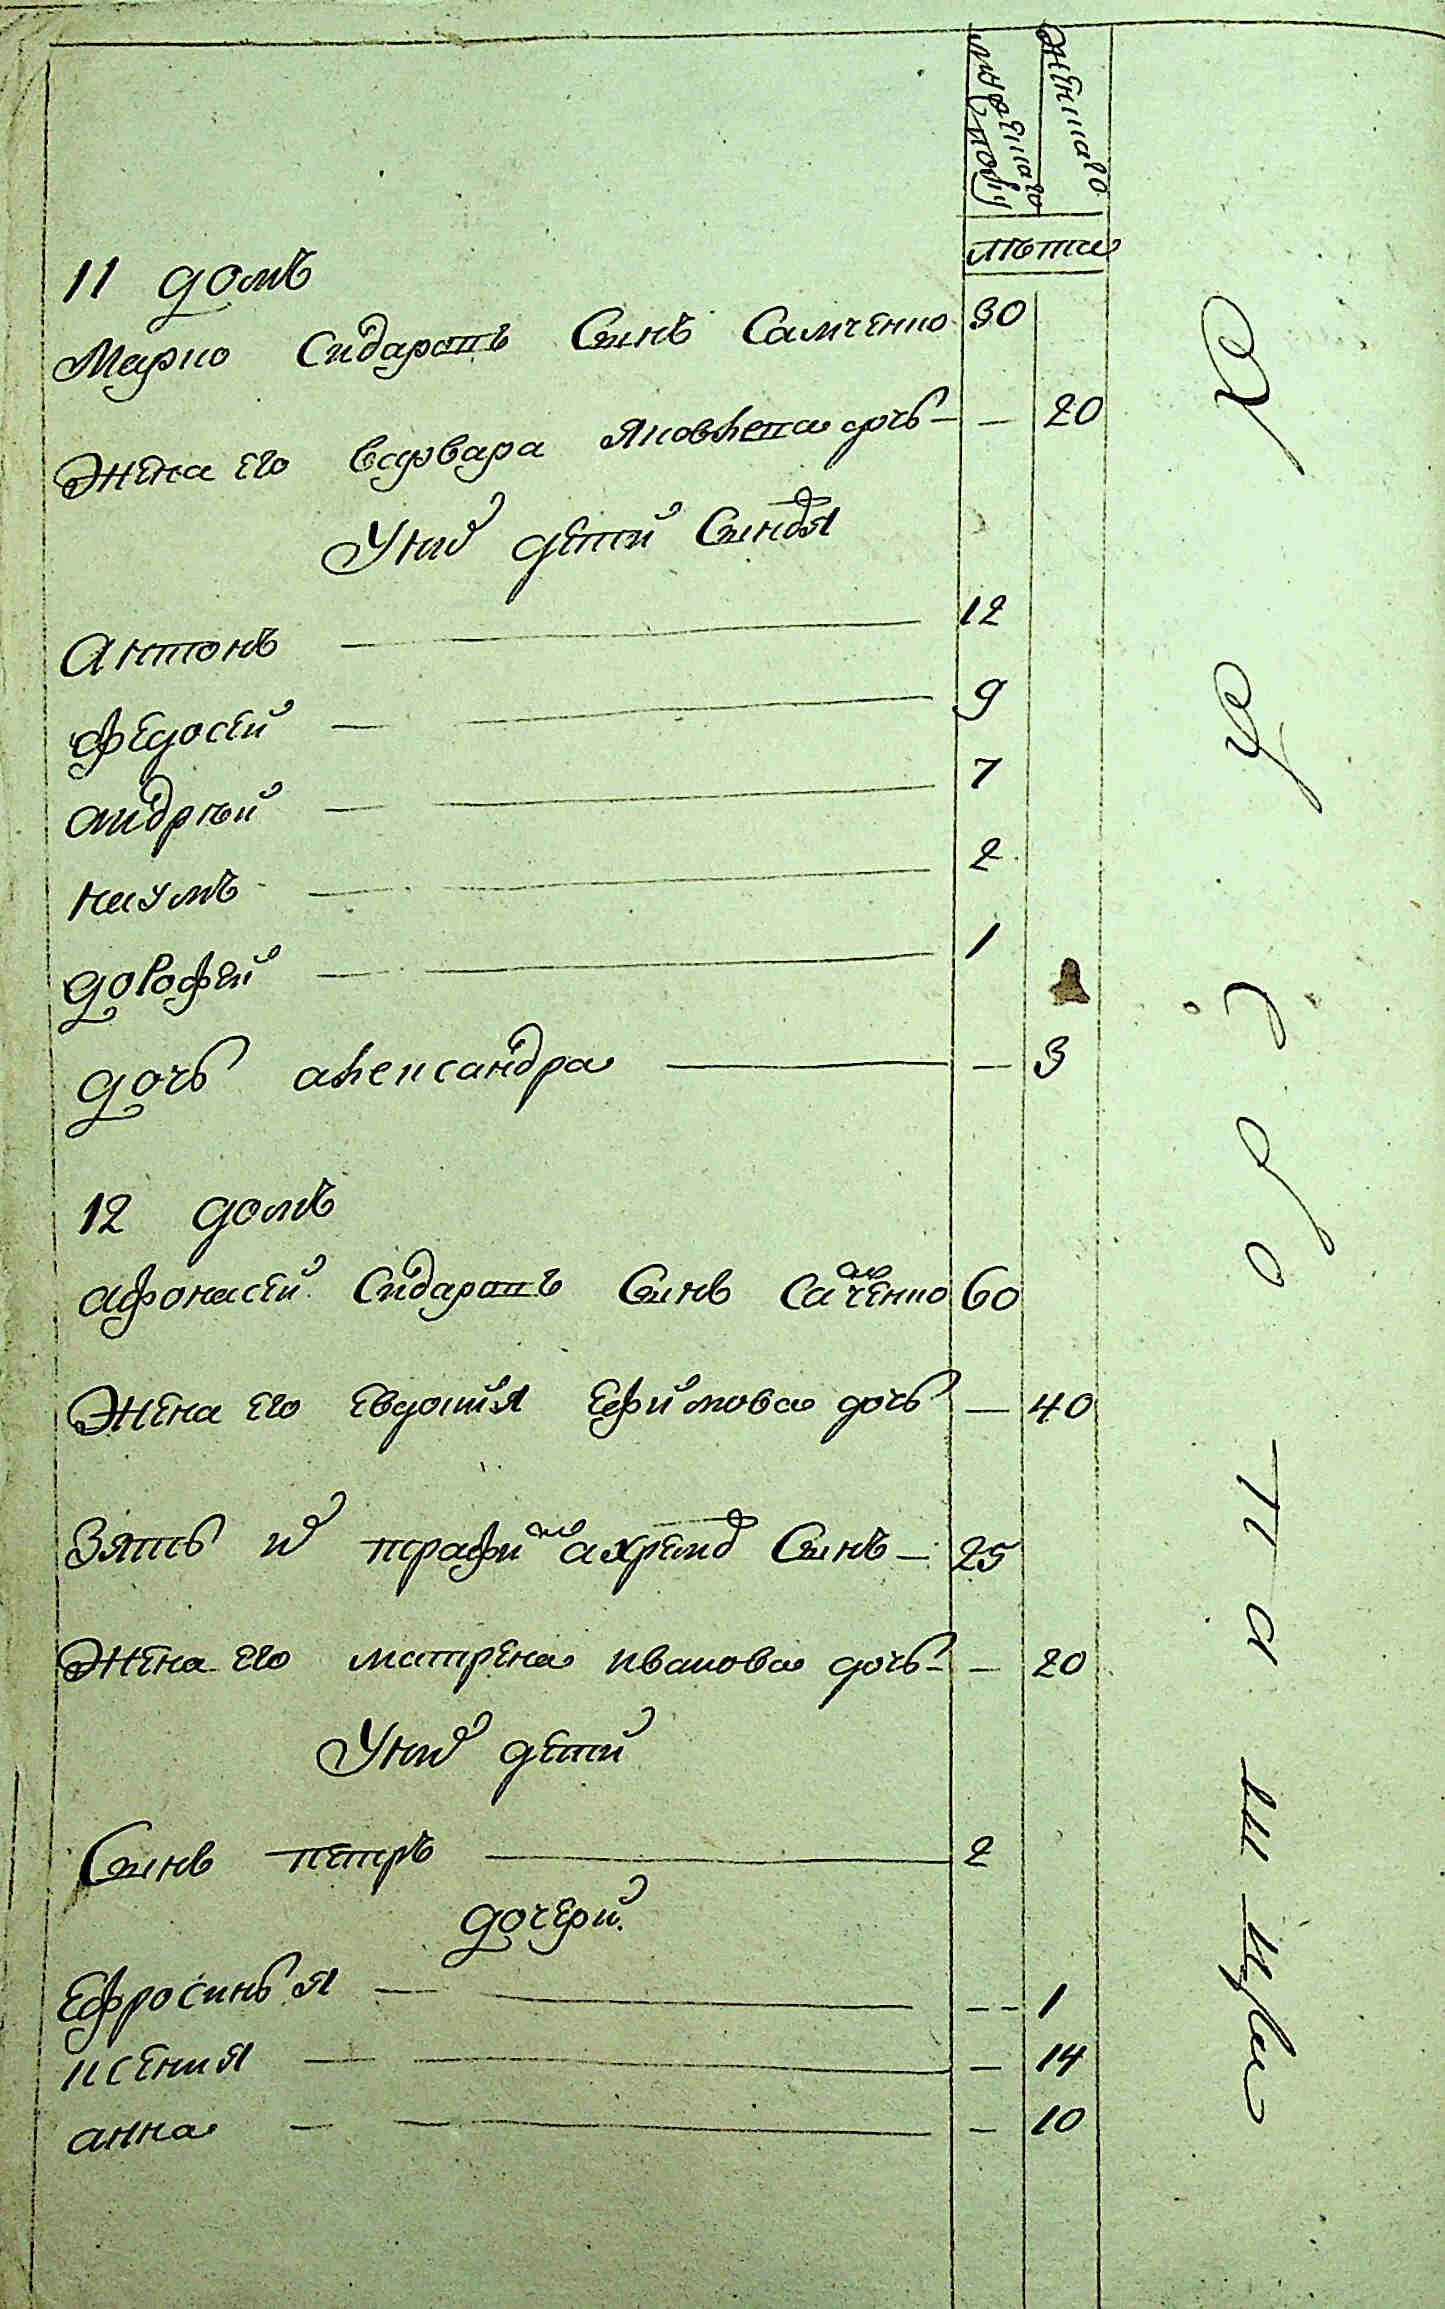 мужеска полу
женска
лѣта
11 домъ
Марко Сидаровъ Синъ Самченко 30
Жена его варвара Яковлева дочь - - 20
У них дети Синовя
Антонъ 12
федосей 9
андрѣй 7
наумъ 2
дорофей 1
дочь александра - 3
12 домъ
афонасей Сидаровъ Синъ Самченко 60
Жена его евдокия Ефимова дочь - 40
Зять их трафим ахремов Синъ - 25
Жена его матрена иванова дочь - - 20
У них дети
Синъ петръ 2
дочери
Ефросинья - - 1
ксения - 14
анна - 10